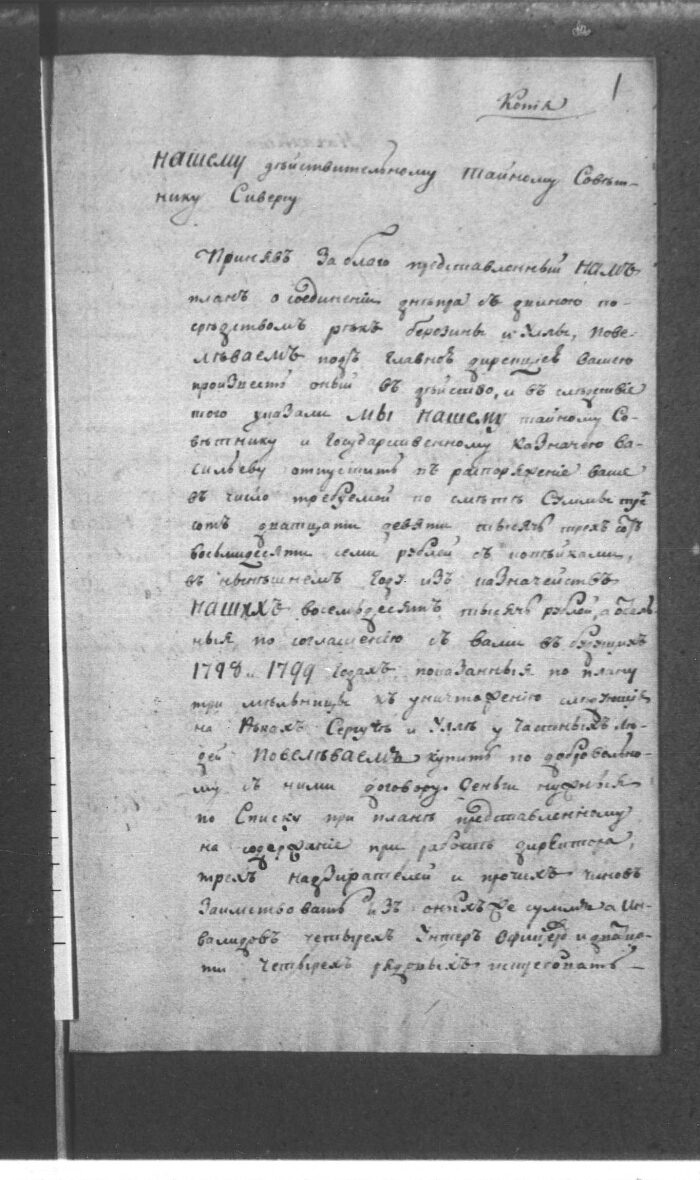 1
Копія
НАШЕМУ дѣйствительному Тайному Совѣт-
нику Сиверсу
Принявъ за благо представленный НАМЪ
планъ о соединеніи Днѣпра съ Двиною по-
средствомъ рѣкъ Березины и Уллы, Пове-
лѣваемъ подъ главною дирекціею вашею
произвесть оный въ дѣйство, и въ слѣдствіе
того указали МЫ НАШЕМУ тайному Со-
вѣтнику и Государственному Казначею Ва-
сильеву отпустить въ распоряженіе ваше
въ число требуемой по смѣтѣ Суммы трех
сотъ дватцати девяти тысячь трехъ сотъ
восьмидесяти семи рублей съ копѣйками,
въ нынѣшнемъ году изъ казначействъ
НАШИХЪ восемьдесятъ тысячь рублей, а осталь-
ныя по соглашенію съ вами въ будущихъ
1798 и 1799 годахъ показанныя по плану
три мѣльницы къ уничтоженію слѣдующія
на Рѣкахъ Сергучѣ и Уллѣ у Частныхъ лю-
дей Повелѣваемъ купить по добровольно-
му съ ними договору. Деньги нужныя
по Списку при планѣ представленному
на содержаніе при работѣ директора,
трехъ надзирателей и прочихъ чиновъ
Заимствовать изъ оныхъ же суммъ, а Ин-
валидовъ четырехъ Унтеръ Офицеровъ и
четырехъ рядовыхъ